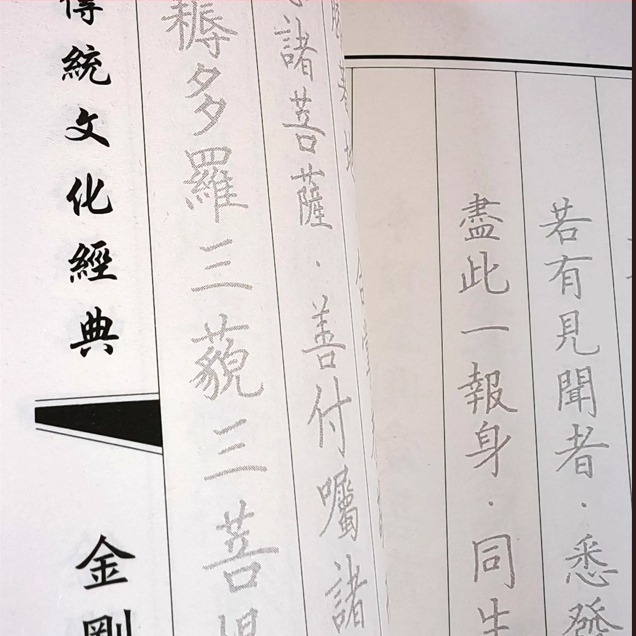 若有見聞者．悉發
盡此一報身．同生
諸菩薩．善付囑諸
耨多羅三藐三菩提
傳統文化經典
金剛